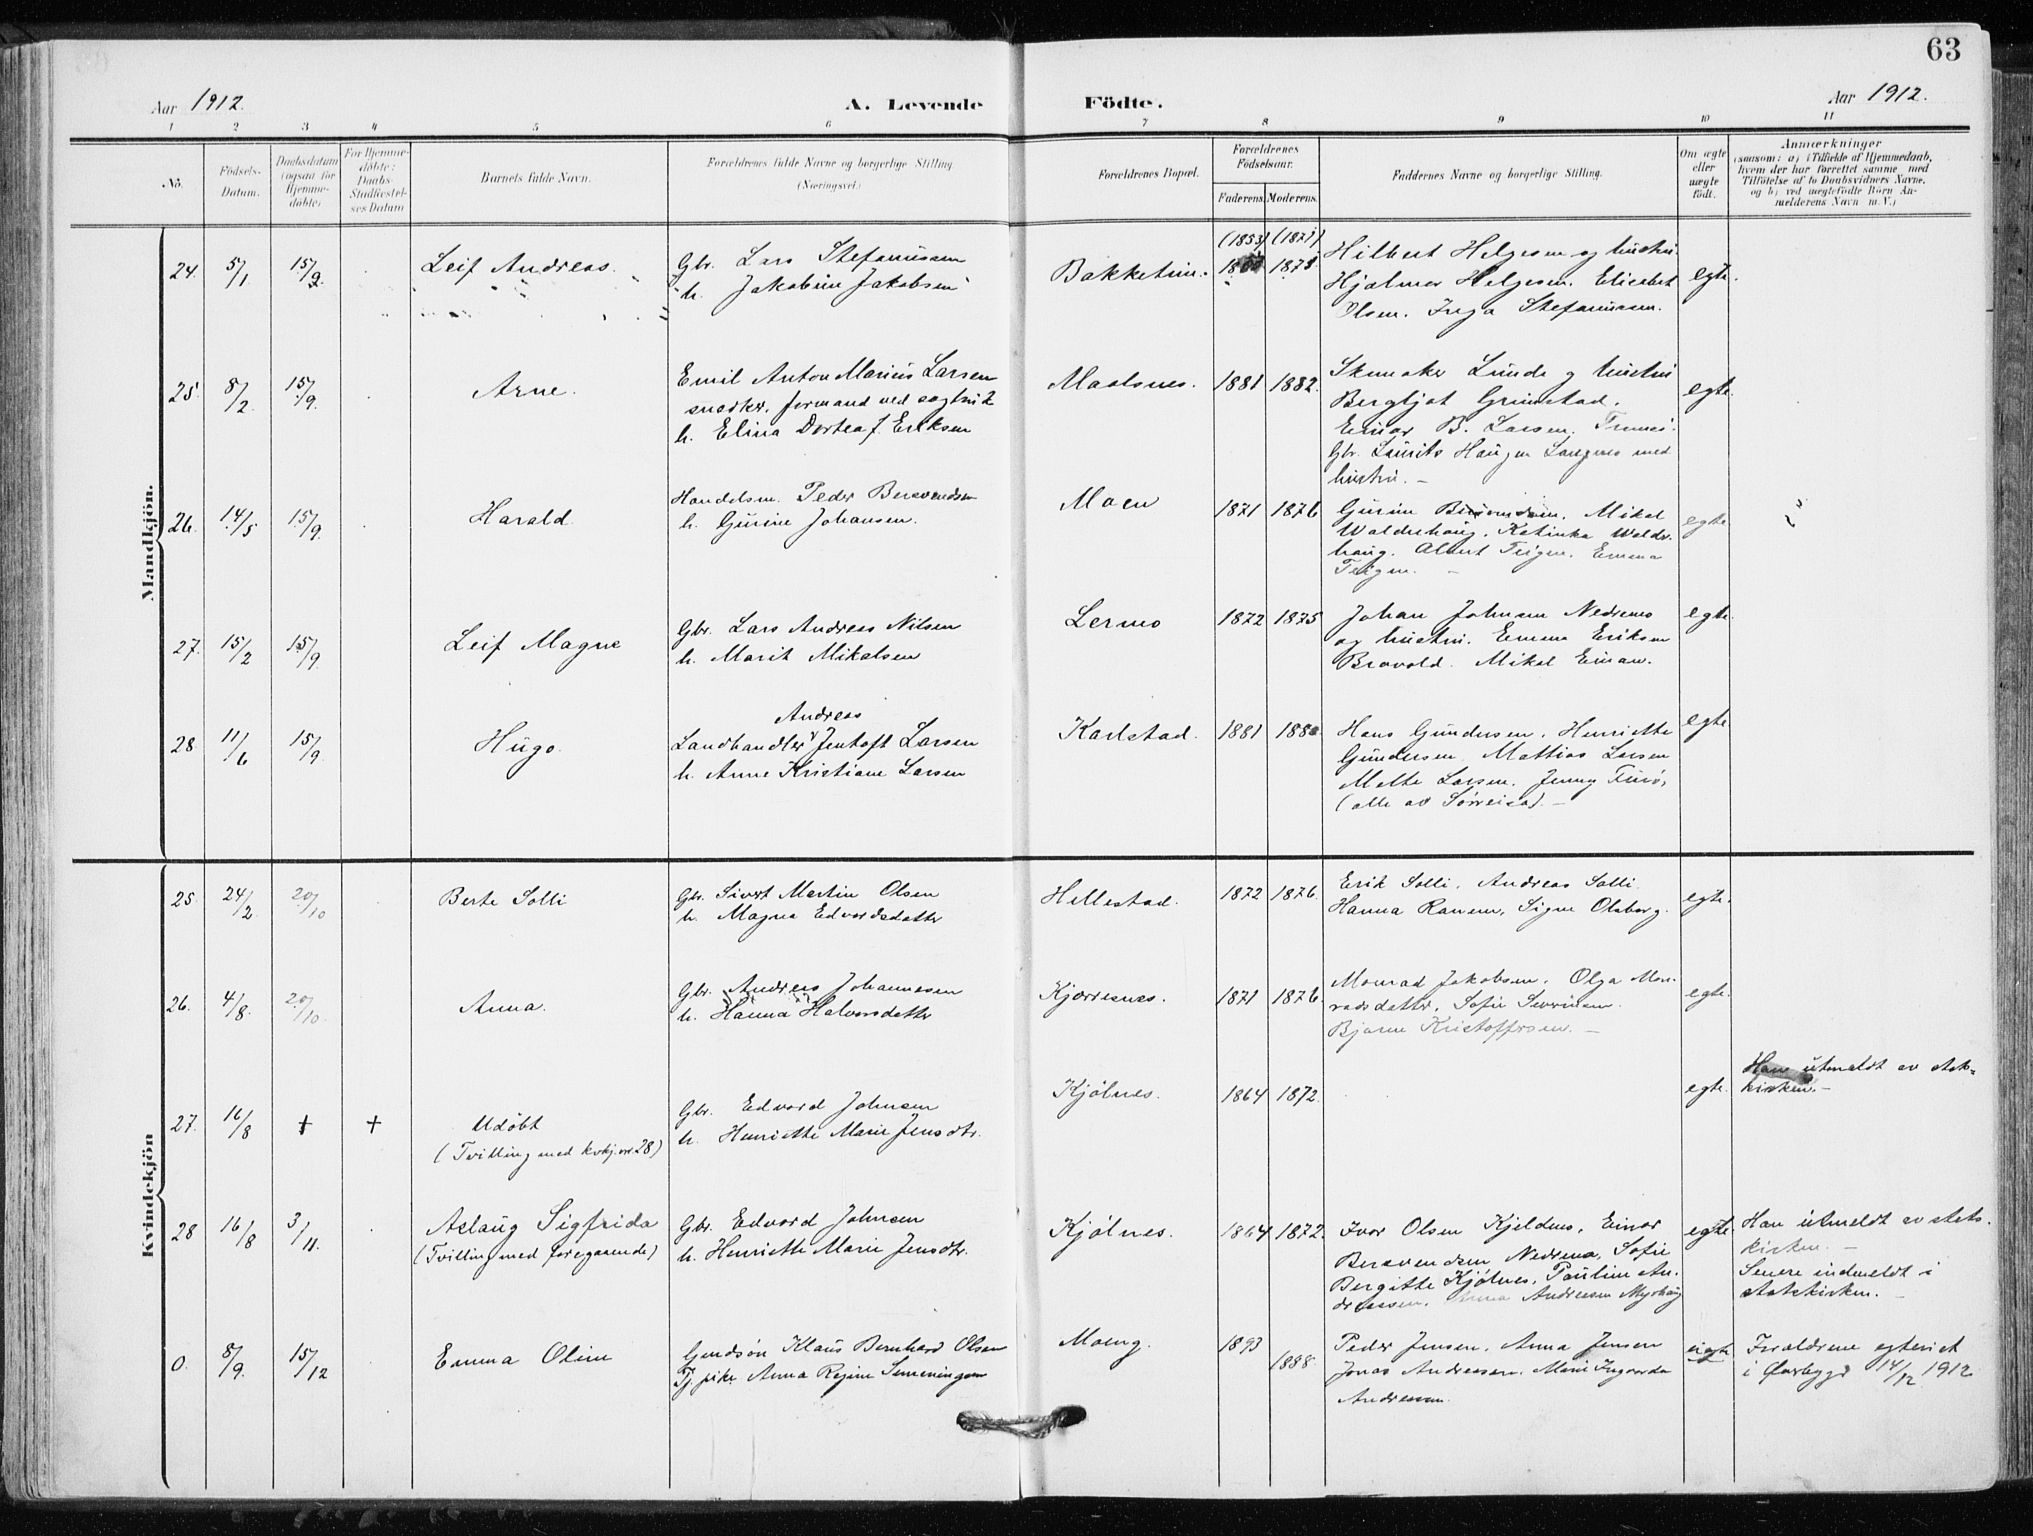 63
Aar 1912.
A. Levende Födte.
Aar 1912.
1 2 3 4 5 6 7 8 9 10 11
No.
Födsels-Datum.
Daabsdatum (ogsaa for Hjemme-döbte)
For Hjemme-döbte: Daabs-Stadfæstel-ses Datum
Barnets fulde Navn.
Forældrenes fulde Navne og borgerlige Stilling
(Næringsvei.)
Forældrenes Bopæl.
Forældrenes Födselsaar.
Faderens. Moderens.
Faddernes Navne og borgerlige Stilling.
Om ægte eller uægte födt.
Anmærkninger
(saasom: a) i Tilfælde af Hjemmedaab,
hvem der har forrettet samme med
Tilföielse af to Daabsvidners Navne,
og b) ved uægtefödte Börn An-
melderens Navn m. V.)
Mandkjön.
24. 5/1 15/9. Leif Andreas.
Gbr. Lars Stefanussen
h. Jakobine Jakobsen
Bakketun.
(1853) (1871)
1875.
Hilbert Helgesen og hustru.
Hjalmar Helgesen. Elisabet
Olsen. Inga Stefanussen.
egte.
25. 8/2. 15/9. Arne.
Emil Anton Marius Larsen
snedker, formand ved sagbruk
h. Elina Dortea J. Eriksen
Maalsnes. 1881 1882.
Skomaker Lunde og hustru
Bergljot Grimstad.
Einar B. Larsen.
Gbr. Laurits Haugen Langnes med
hustru. –
egte.
26. 14/5 15/9. Harald.
Handelsm. Peder Bersvendsen
h. Gurine Johansen.
Moen 1871 1876
Mikal
Walderhaug. Katinka Walder-
haug. Albert Teigen. Emma
Teigen. –
egte.
27. 15/2 15/9 Leif Magne
Gbr. Lars Andreas Nilsen
h. Marit Mikalsen
Lermo 1872 1875
Johan Johnsen Nedremo
og hustru. Emma Eriksen
Bravold. Mikal Einan.
egte.
28. 11/6 15/9. Hugo.
Andreas
Landhandler Jentoft Larsen
h. Anne Kristiane Larsen
Karlstad. 1881
Hans Gundersen. Henriette
Gundersen. Mattias Larsen
Larsen. Jenny Furö,
(alle av Sørreisa). –
egte.
Kvindekjön
25. 24/2. 20/10 Berte Solli
Gbr. Sivert Martin Olsen
h. Magna Edvardsdatter
Hellestad. 1872 1876.
Erik Solli. Andreas Solli.
Hanna Ranem, Signe Olsborg.
egte.
26. 4/8. 20/10. Anna.
Gbr. Andreas Johannesen
h. Hanna Halvorsdatter
Kjærresnes. 1871 1876.
Monrad Jakobsen. Olga Mon-
radsdatter. Sofie Severinsen.
Bjarne Kristoffersen. –
egte.
27. 16/8 + + Udøbt
(Tvilling med kvkj. nr. 28)
Gbr. Edvard Johnsen
h. Henriette Marie Jensdtr.
Kjølnes. 1864 1872.
egte.
Han utmeldt av stats-
kirken. –
28 16/8 3/11. Aslaug Sigfrida
(Tvilling med foregaaende)
Gbr. Edvard Johnsen
h. Henriette Marie Jensdtr.
Kjølnes. 1864 1872.
Ivar Olsen Kjeldnes, Einar
Bersvendsen Nedremo, Sofie
Bergitte Kjølnes, Pauline An-
dreassen. Andreassen Myrhaug
egte.
Han utmeldt av stats-
kirken. –
Senere indmeldt i
statskirken. –
0. 8/9. 15/12 Emma Oline
Gaardsøn Klaus Bernhard Olsen
Tj. pike Anna Regine Simeningsen
Moeng. 1893 1888.
Peder Jensen. Anna Jensen
Jonas Andreassen. Marie Ingvarda
Andreassen.
uegte
Forældrene egteviet
i Øverbygd 14/12 1912